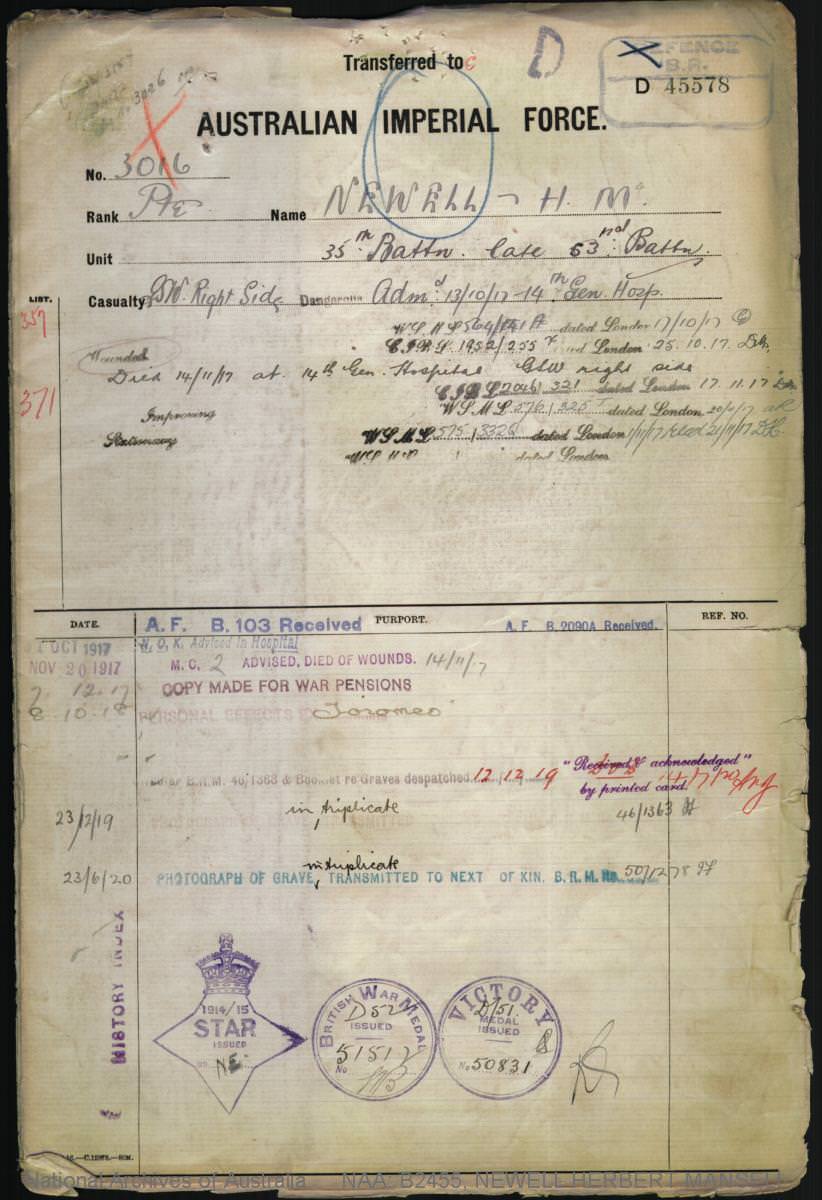 Transferred to
D
DEFENCE
B.R.
D 45578
AUSTRALIAN IMPERIAL FORCE.
No. 3016
Rank Pte Name NEWELL - H. M.
Unit 35th Battn. late 53rd Battn.
LIST.
Casualty GSW. Right Side Dangerously Admd 13/10/17 - 14th Gen. Hosp.
357
dated London 17/10/17
Wounded
1952/255 dated London 25.10.17
Died 14/11/17 at 14th Gen. Hospital GSW right side
371
321 dated London 17.11.17
Improving
W.S.M.L. 576/325 dated London
Stationary
W.S.M.L. 575/332 dated London
dated London
DATE. PURPORT. REF. NO.
A.F. B.103 Received A.F. B.2090A Received.
OCT 1917 N.O.K. Advised in Hospital
NOV 20 1917 M.C. 2 ADVISED, DIED OF WOUNDS. 14/11/17
7.12.17 COPY MADE FOR WAR PENSIONS
8.10.18 PERSONAL EFFECTS Toromeo
B.R.M. 46/1363 & Booklet re Graves despatched 12/12/19
"Received & acknowledged"
by printed card.
23/12/19 in triplicate 46/1363
23/6/20 PHOTOGRAPH OF GRAVE, in triplicate TRANSMITTED TO NEXT OF KIN. B.R.M. No. 50/1278
HISTORY INDEX
1914/15
STAR
ISSUED
NO. NE.
BRITISH WAR MEDAL
D52
ISSUED
No 51512
VICTORY
D/51.
MEDAL
ISSUED
No 50831
National Archives of Australia NAA: B2455, NEWELL HERBERT MANSELL